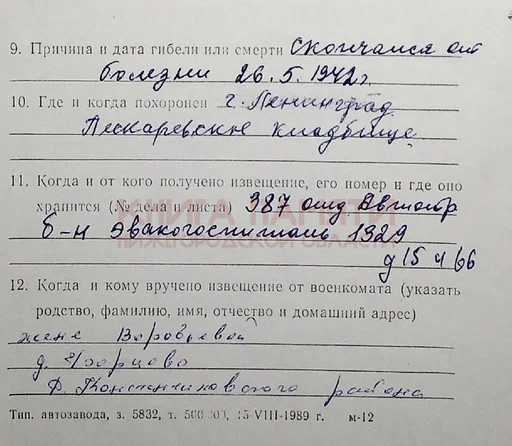 9. Причина и дата гибели или смерти Скончался от
болезни 26.5.1942г
10. Где и когда похоронен г. Ленинград
Пескаревское кладбище
11. Когда и от кого получено извещение, его номер и где оно
хранится (№ дела и листа) 387 отд Автотр
КНИГА ПАМЯТИ
НИЖЕГОРОДСКОЙ ОБЛАСТИ
б-н Эвакогоспиталь 1329
д 15 л 66
12. Когда и кому вручено извещение от военкомата (указать
родство, фамилию, имя, отчество и домашний адрес)
жене Воробьевой
д.
Д. Константиновского района
Тип. автозавода, з. 5832, т. 500 000, 15-VIII-1989 г. м-12